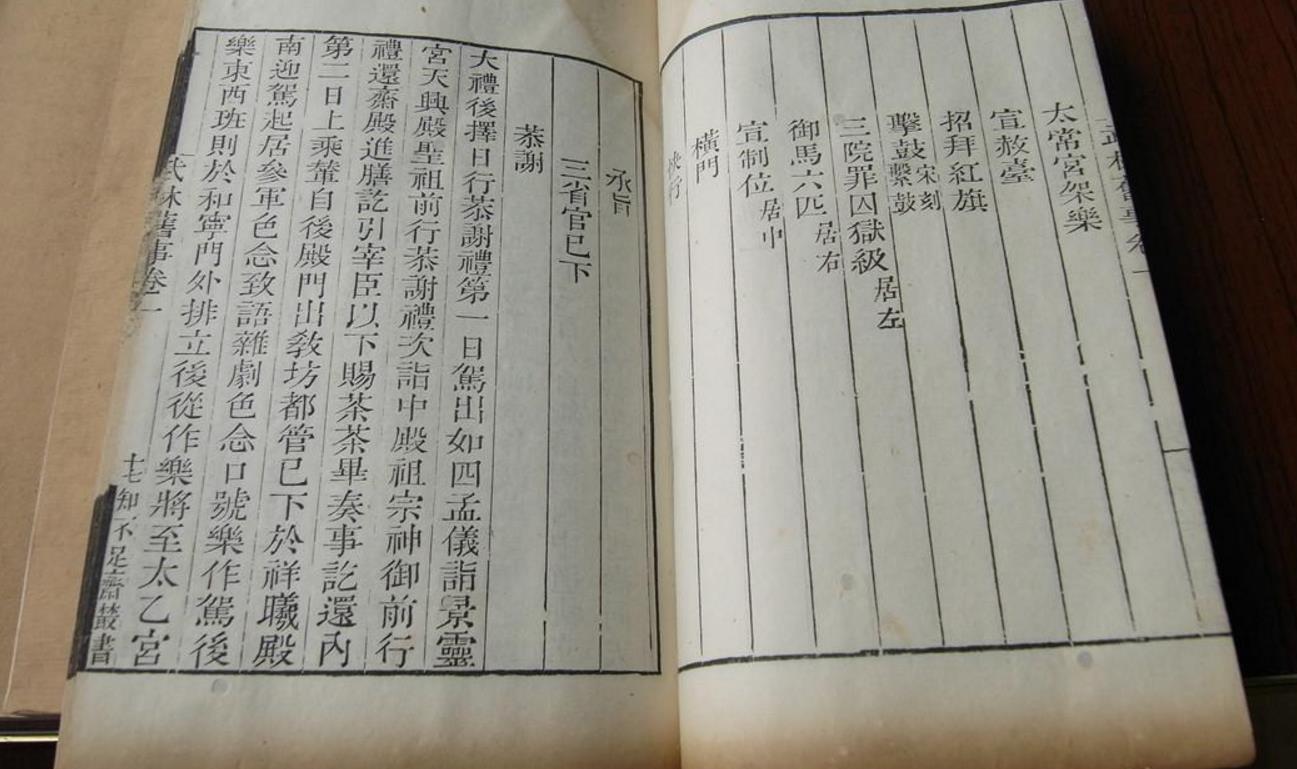 武林舊事卷一
太常宮架樂
宣赦臺
招拜紅旗
擊鼓宋刻繫鼓
三院罪囚獄級居左
御馬六匹居右
宣制位居中
橫門
快行
承旨
三省官已下
恭謝
大禮後擇日行恭謝禮第一日駕出如四孟儀詣景靈
宮天興殿聖祖前行恭謝禮次詣中殿祖宗神御前行
禮還齋殿進膳訖引宰臣以下賜茶茶畢奏事訖還內
第二日上乘輦自後殿門出教坊都管已下於祥曦殿
南迎駕起居參軍色念致語雜劇色念口號樂作駕後
樂東西班則於和寧門外排立後從作樂將至太乙宮
武林舊事卷一
知不足齋叢書